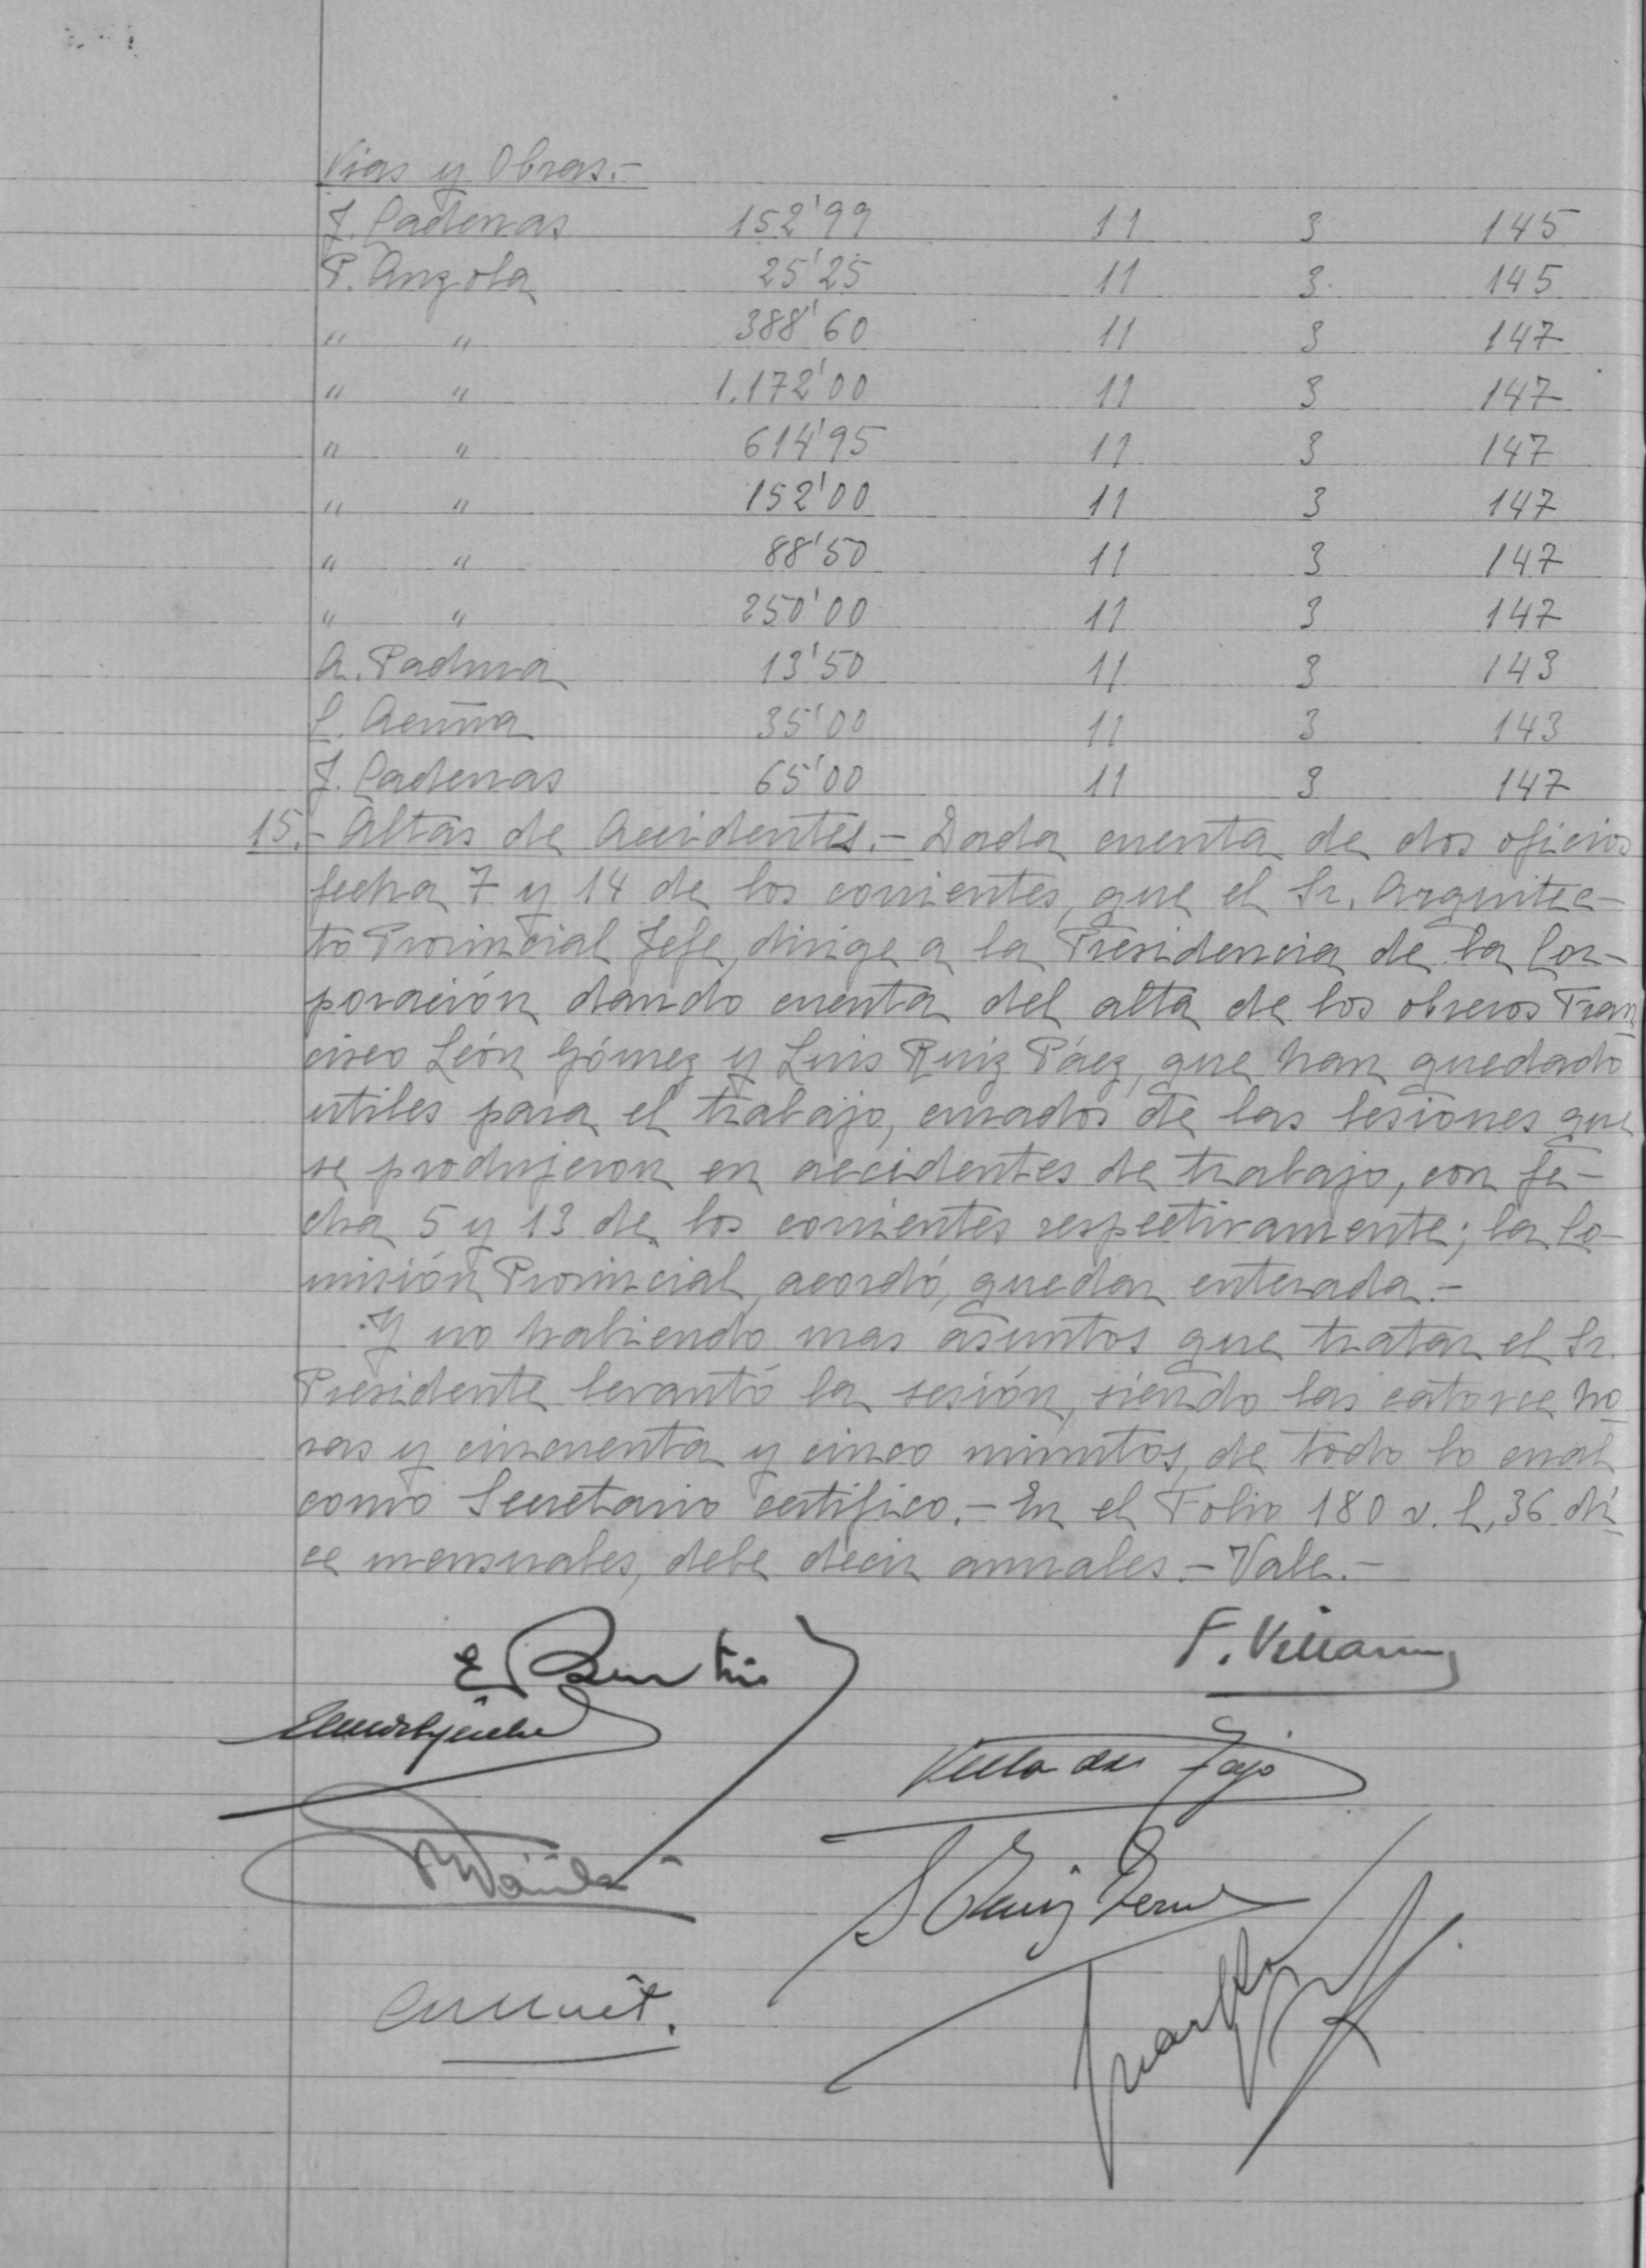 Vias y Obras.-
J. Cadenas 152'99 11 3 145
P. Anzola 25'25 11 3 145
" " 388'60 11 3 147
" " 1.172'00 11 3 147
" " 614'95 11 3 147
" " 152'00 11 3 147
" " 88'50 11 3 147
" " 250'00 11 3 147
A. Padura 13'50 11 3 143
C. Acuña 35'00 11 3 143
J. Cadenas 65'00 11 3 147
15.- Altas de Accidentes.- Dada cuenta de dos oficios
fecha 7 y 14 de los corrientes, que el Sr. Arquitec-
to Provincial Jefe, dirige a la Presidencia de la Cor-
poración dando cuenta del alta de los obreros Fran
cisco León Gómez y Luis Ruiz Páez, que han quedado
utiles para el trabajo, curados de las lesiones que
se produjeron en accidentes de trabajo, con fe-
cha 5 y 13 de los corrientes respectivamente; la Co-
misión Provincial, acordó, quedar enterada.-
Y no habiendo mas asuntos que tratar el Sr.
Presidente levantó la sesión, siendo las catorce ho
ras y cincuenta y cinco minutos, de todo lo cual
como Secretario certifico.- En el Folio 180 v. l, 36 di
ce mensuales, debe decir anuales.- Vale.-
F.
Ruiz